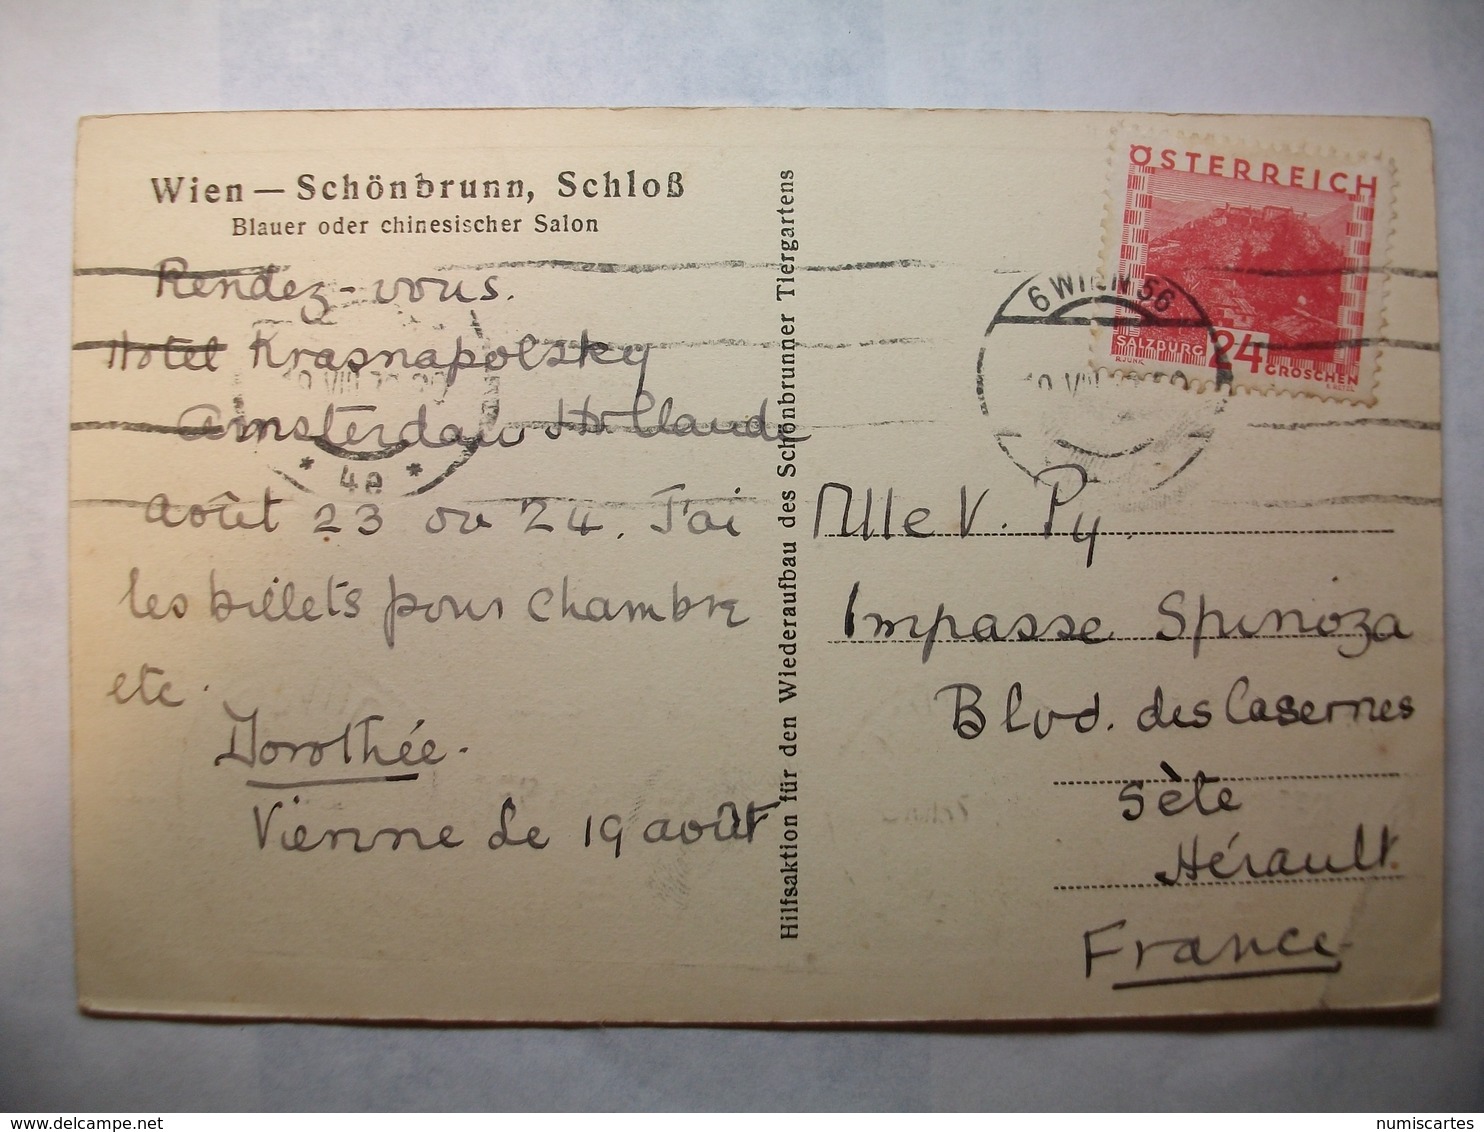 Wien — Schönbrunn, Schloß
Blauer oder chinesischer Salon
Rendez-vous.
Hotel Krasnapolsky
Amsterdam Hollande
Août 23 ou 24. J'ai
les billets pour chambre
etc.
Dorothée.
Vienne le 19 août
Hilfsaktion für den Wiederaufbau des Schönbrunner Tiergartens
ÖSTERREICH
SALZBURG 24 GROSCHEN
6 WIEN 56
* 4a *
Mlle V. Py.
Impasse Spinoza
Blvd. des Casernes
Sète
Hérault
France
numiscartes